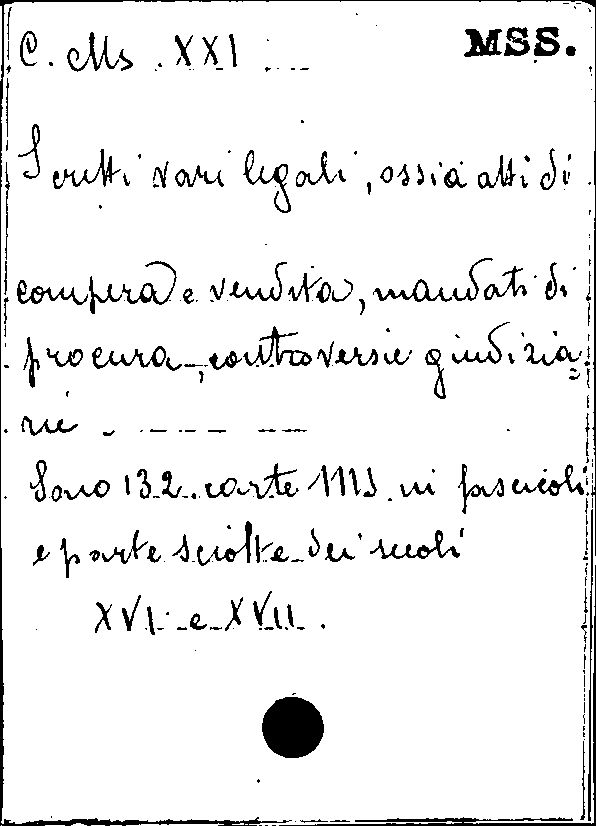 C. Ms. XXI
MSS.
Scritti vari legali, ossia atti di
compera e vendita, mandati di
procura, controversie giudizia=
rie
Sono 132 carte mss in fascicoli
e parte sciolte dei secoli
XVI e XVII.